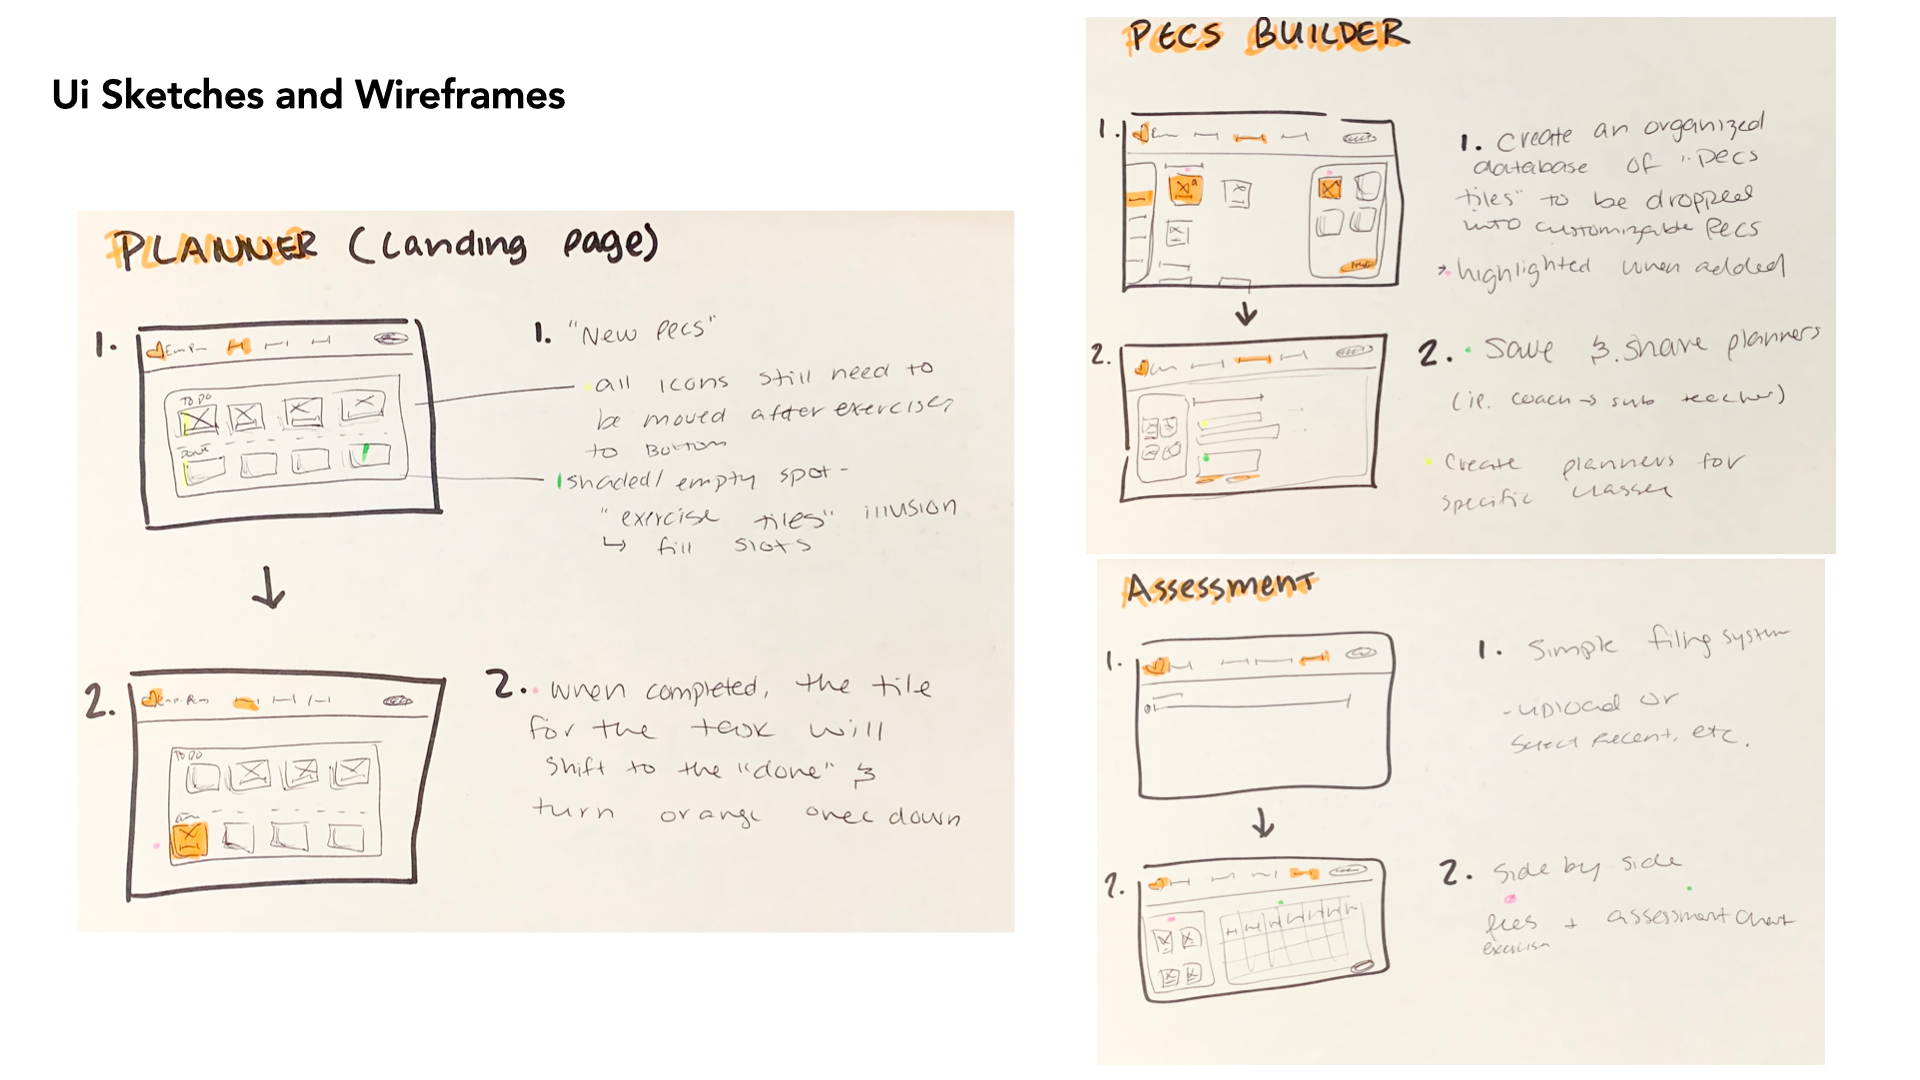 Ui Sketches and Wireframes
PLANNER (Landing page)
1.
TO DO
Done
1. "New pecs"
all icons still need to
be moved after exercises
to Bottom
shaded/ empty spot -
"exercise tiles" illusion
↳ fill slots
2.
TO DO
2. when completed, the tile
for the task will
shift to the "done" &
turn orange once down
PECS BUILDER
1.
1. Create an organized
database of "Pecs
tiles" to be dropped
into customizable Pecs
* highlighted when added
2.
2. Save & share planners
(ie. coach → sub teacher)
Create planners for
specific classes
Assessment
1.
1. Simple filing system
- upload or
Select Recent, etc.
2.
2. Side by side
pecs + assessment chart
exercises